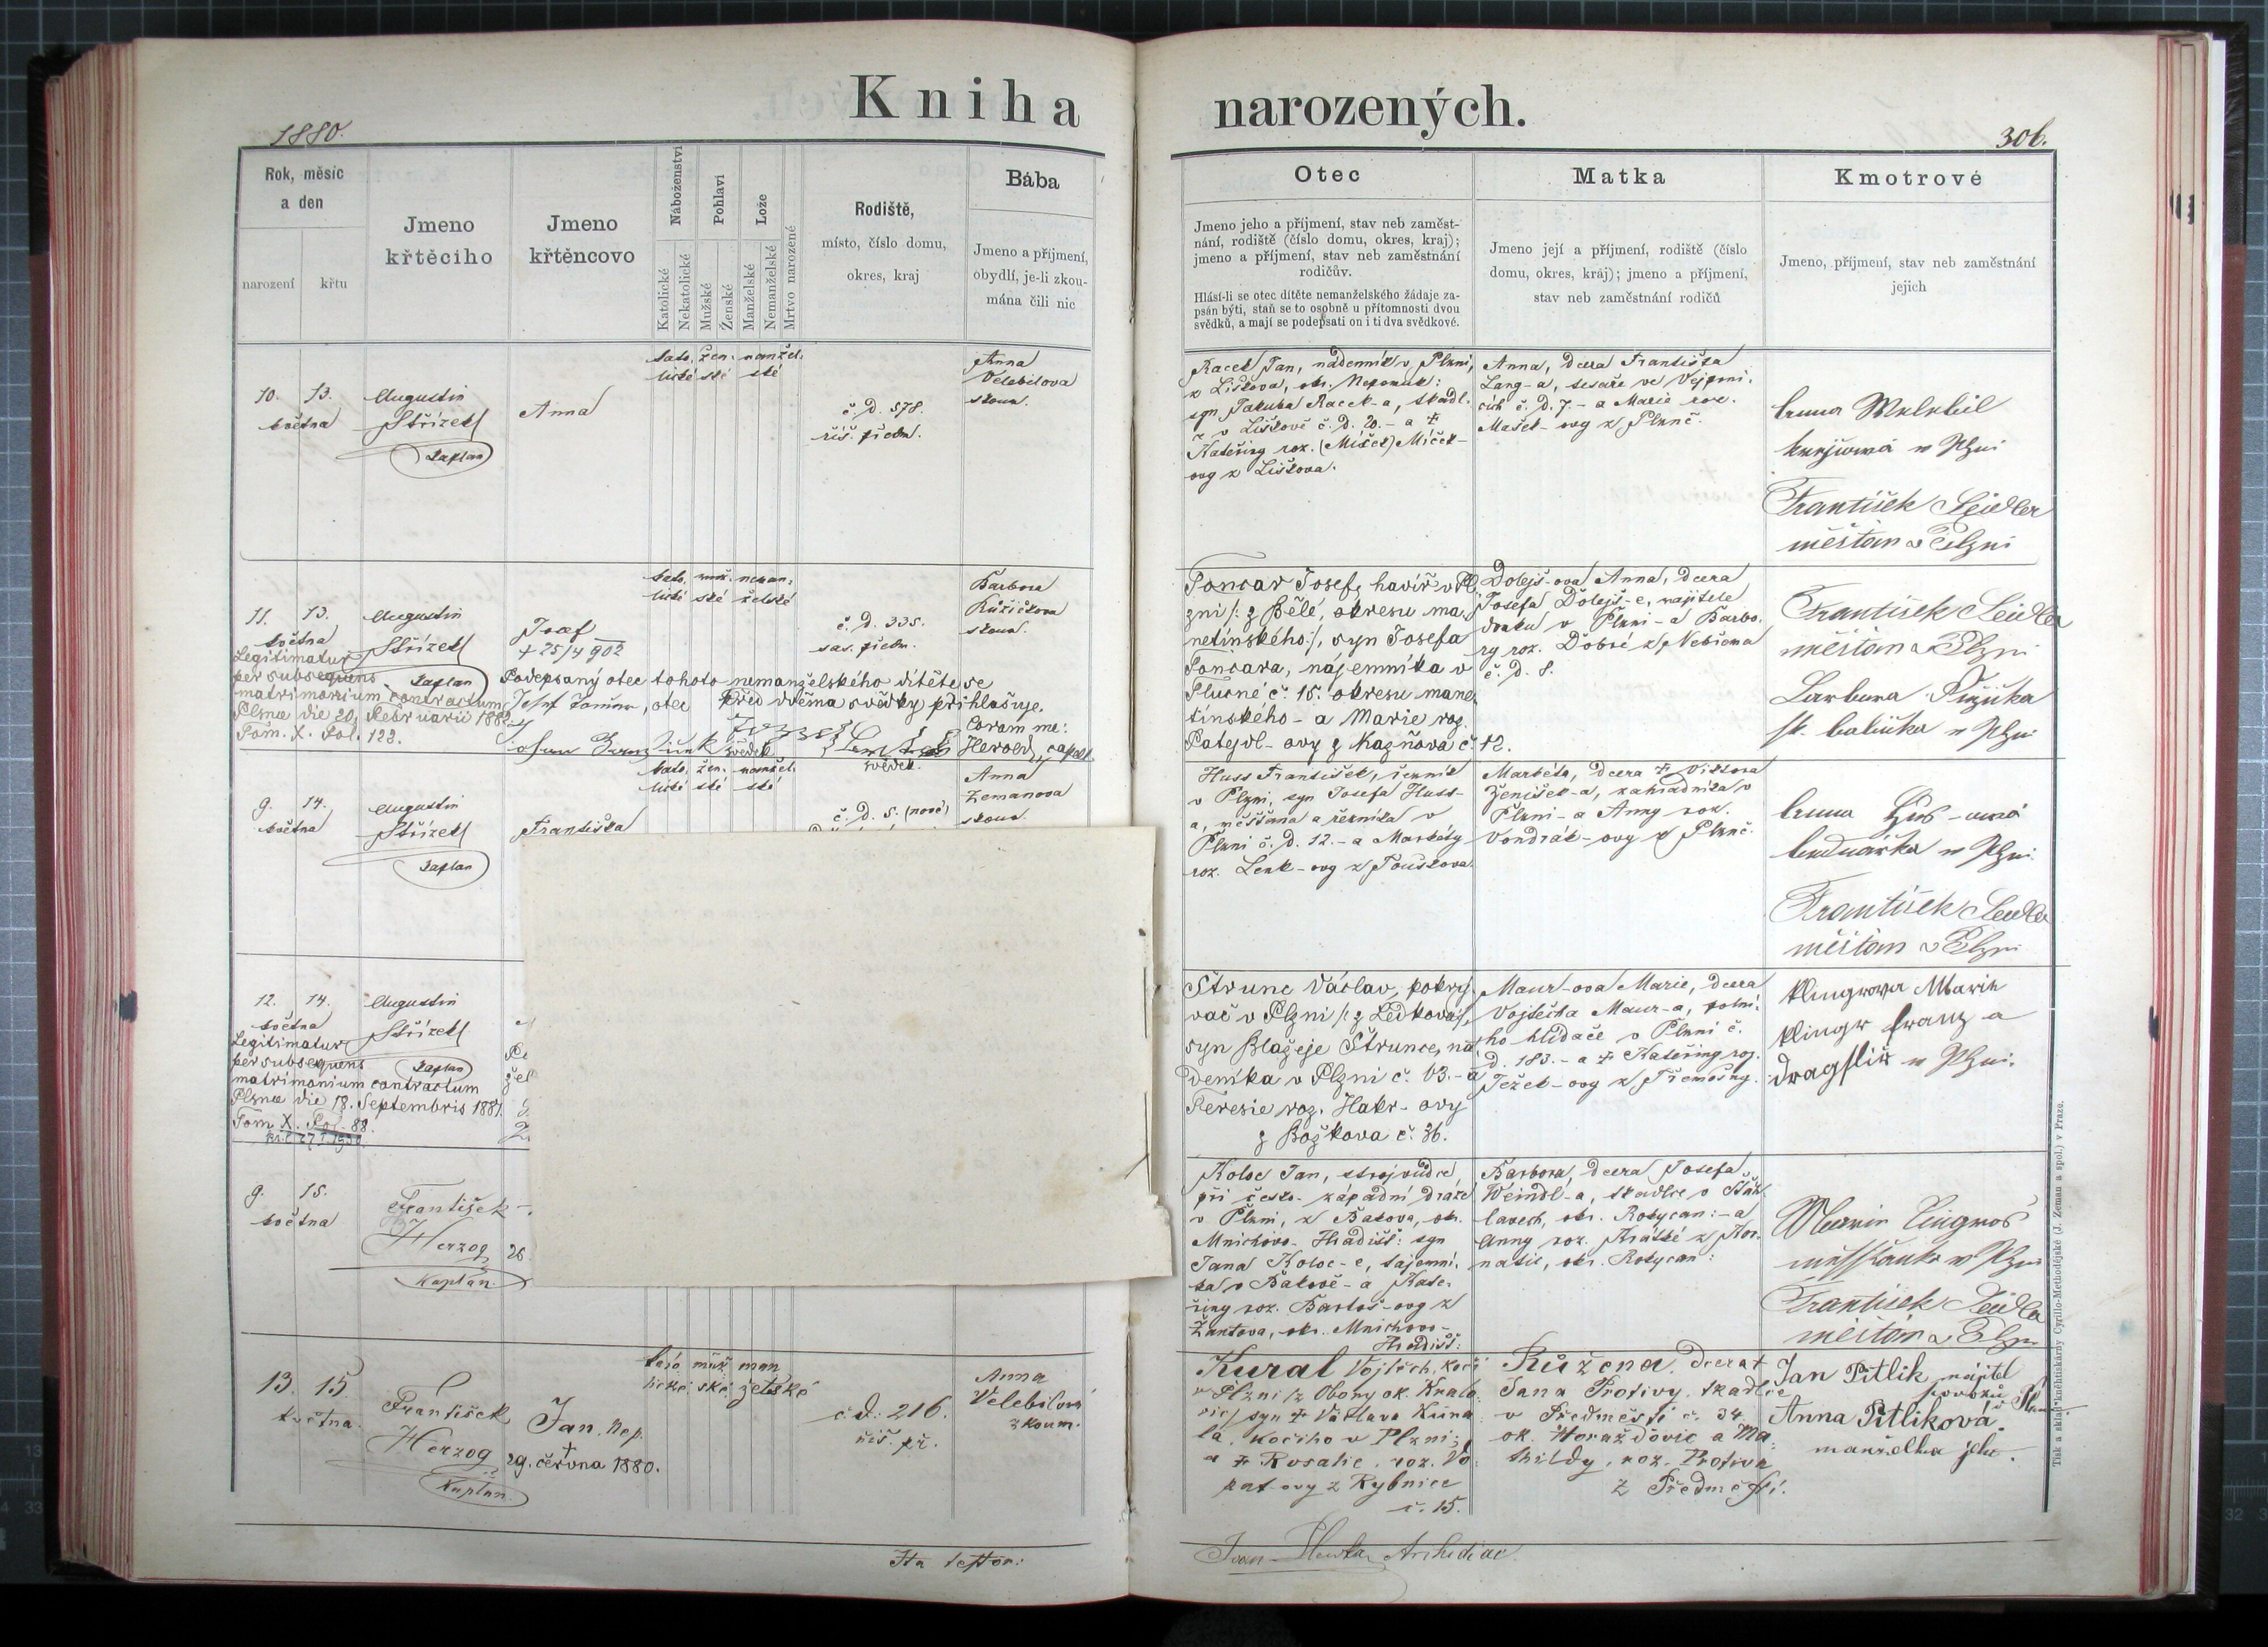 Kniha narozených.
1880.
306.
Rok, měsíc
a den
narození
křtu
Jmeno
křtěcího
Jmeno
křtěncovo
Náboženství
Katolické
Nekatolické
Pohlaví
Mužské
Ženské
Lože
Manželské
Nemanželské
Mrtvo narozené
Rodiště,
místo, číslo domu,
okres, kraj
Bába
Jmeno a příjmení,
obydlí, je-li zkou-
mána čili nic
Otec
Jmeno jeho a příjmení, stav neb zaměst-
nání, rodiště (číslo domu, okres, kraj);
jmeno a příjmení, stav neb zaměstnání
rodičův.
Hlásí-li se otec dítěte nemanželského žádaje za-
psán býti, staň se to osobně u přítomnosti dvou
svědků, a mají se podepsati on i ti dva svědkové.
Matka
Jmeno její a příjmení, rodiště (číslo
domu, okres, kraj); jmeno a příjmení,
stav neb zaměstnání rodičů
Kmotrové
Jmeno, příjmení, stav neb zaměstnání
jejich
10. 13.
května
Augustin
Střízek
Kaplan
Anna
kato. žen. manžel.
lické ské ské
č. d. 578.
říš. předm.
Anna
Velebilova
zkoum.
Racek Jan, nádenník v Plzni,
z Liškova, okr. Nepomuk:
syn Jakuba Racek-a, tkadl-
ce v Liškově č. d. 20. - a †
Kateřiny roz. (Míšek) Míček-
ovy z Liškova.
Anna, dcera Františka
Lang-a, tesaře ve Vejprni-
cích č. d. 7. - a Marie roz.
Mašek-ovy z Plzně.
Anna Welebil
krejčowá w Plzni
František Seidler
měšťan v Plzni
11. 13.
května
Legitimatur
per subsequens
matrimonium contractum
Plznæ die 20. Februarii 1882.
Tom. X. Fol. 123.
Augustin
Střízek
Kaplan
Josef
† 25/4 902
kato. muž. neman-
lické ské želské
č. d. 335.
sas. předm.
Barbora
Růžičkova
zkoum.
Podepsaný otec tohoto nemanželského dítěte se
Josef Toncar, otec před dvěma svědky přihlašuje.
svědek
svědek.
Coram me:
Herold, capell.
Toncar Josef, havíř v Pl-
zni /: z Bělé, okresu ma-
netínského:/, syn Josefa
Toncara, nájemníka v
Plucné č. 15. okresu mane-
tínského - a Marie roz.
Patejdl-ovy z Kazňova č. 12.
Dolejš-ova Anna, dcera
Josefa Dolejš-e, majitele
domku v Plzni - a Barbo-
ry roz. Dobré z Nebřema
č. d. 8.
František Seidler
měšťan v Plzni
Barbora Růžička
zk. babička w Plzni
9. 14.
května
Augustin
Střízek
Kaplan
Františka
kato. žen. manžel.
lické ské ské
č. d. 5. (nové)
Anna
Zemanova
zkoum.
Huss František, řezník
v Plzni, syn Josefa Huss-
a, měšťana a řezníka v
Plzni č. d. 12. - a Markéty
roz. Lenk-ovy z Touškova.
Markéta, dcera † Viktora
Ženíšek-a, zahradníka v
Plzni - a Anny roz.
Vondrák-ovy z Plzně.
bednářka w Plzni.
František Seidler
měšťan v Plzni
12. 14.
května
Legitimatur
per subsequens
matrimonium contractum
Plznæ die 18. Septembris 1881.
Tom X. Fol. 88.
Augustin
Střízek
Kaplan
Štrunc Václav, pokrý-
vač v Plzni /: z Ledkova:/,
syn Blažeje Štrunce, ná-
deníka v Plzni č. 03. - a
Teresie roz. Hakr-ovy
z Božkova č. 36.
Maur-ova Marie, dcera
Vojtěcha Maur-a, polní-
ho hlídače v Plzni č.
d. 183. - a † Kateřiny roz.
Ježek-ovy z Třemošny.
Klingrova Marie
Klingr Franz a
w Plzni.
9. 15.
května
František
Herzog
Kaplan.
Koloc Jan, strojvůdce
při česko-západní dráze
v Plzni, z Bakova, okr.
Mnichovo-Hradišť: syn
Jana Koloc-e, tajemní-
ka v Bakově - a Kate-
řiny roz. Bartoš-ovy z
Žantova, okr. Mnichovo-
Hradišť:
Barbora, dcera Josefa
Weindl-a, tkadlce v Šťáh-
lavech, okr. Rokycan: - a
Anny roz. Krátké z Kor-
natic, okr. Rokycan:
w Plzni
František Seidler
měšťan v Plzni
13. 15.
května.
František
Herzog
Kaplan.
Jan. Nep.
†
29. června 1880.
kato muž man
lické. ské. želské
č. d. 216.
říš. př.
Anna
Velebilová
zkoum.
Kural Vojtěch, kočí
v Plzni /z Obory ok. Kralo
vic/ syn † Václava Kura
la, kočího v Plzni;
a † Rosalie, roz. Vo
kat-ovy z Rybnice
č. 15.
Růžena. Dcera †
Jana Protivy, tkadlce
v Předměstí č. 34
ok. Horažďovic a Ma-
thildy, roz. Protiva
z Předměstí.
Jan Pitlik majitel
povozu
Anna Pitliková
manželka jeho.
Ita testor:
Archidiac.
Tisk a sklad knihtiskárny Cyrillo-Methodějské (J. Zeman a spol.) v Praze.